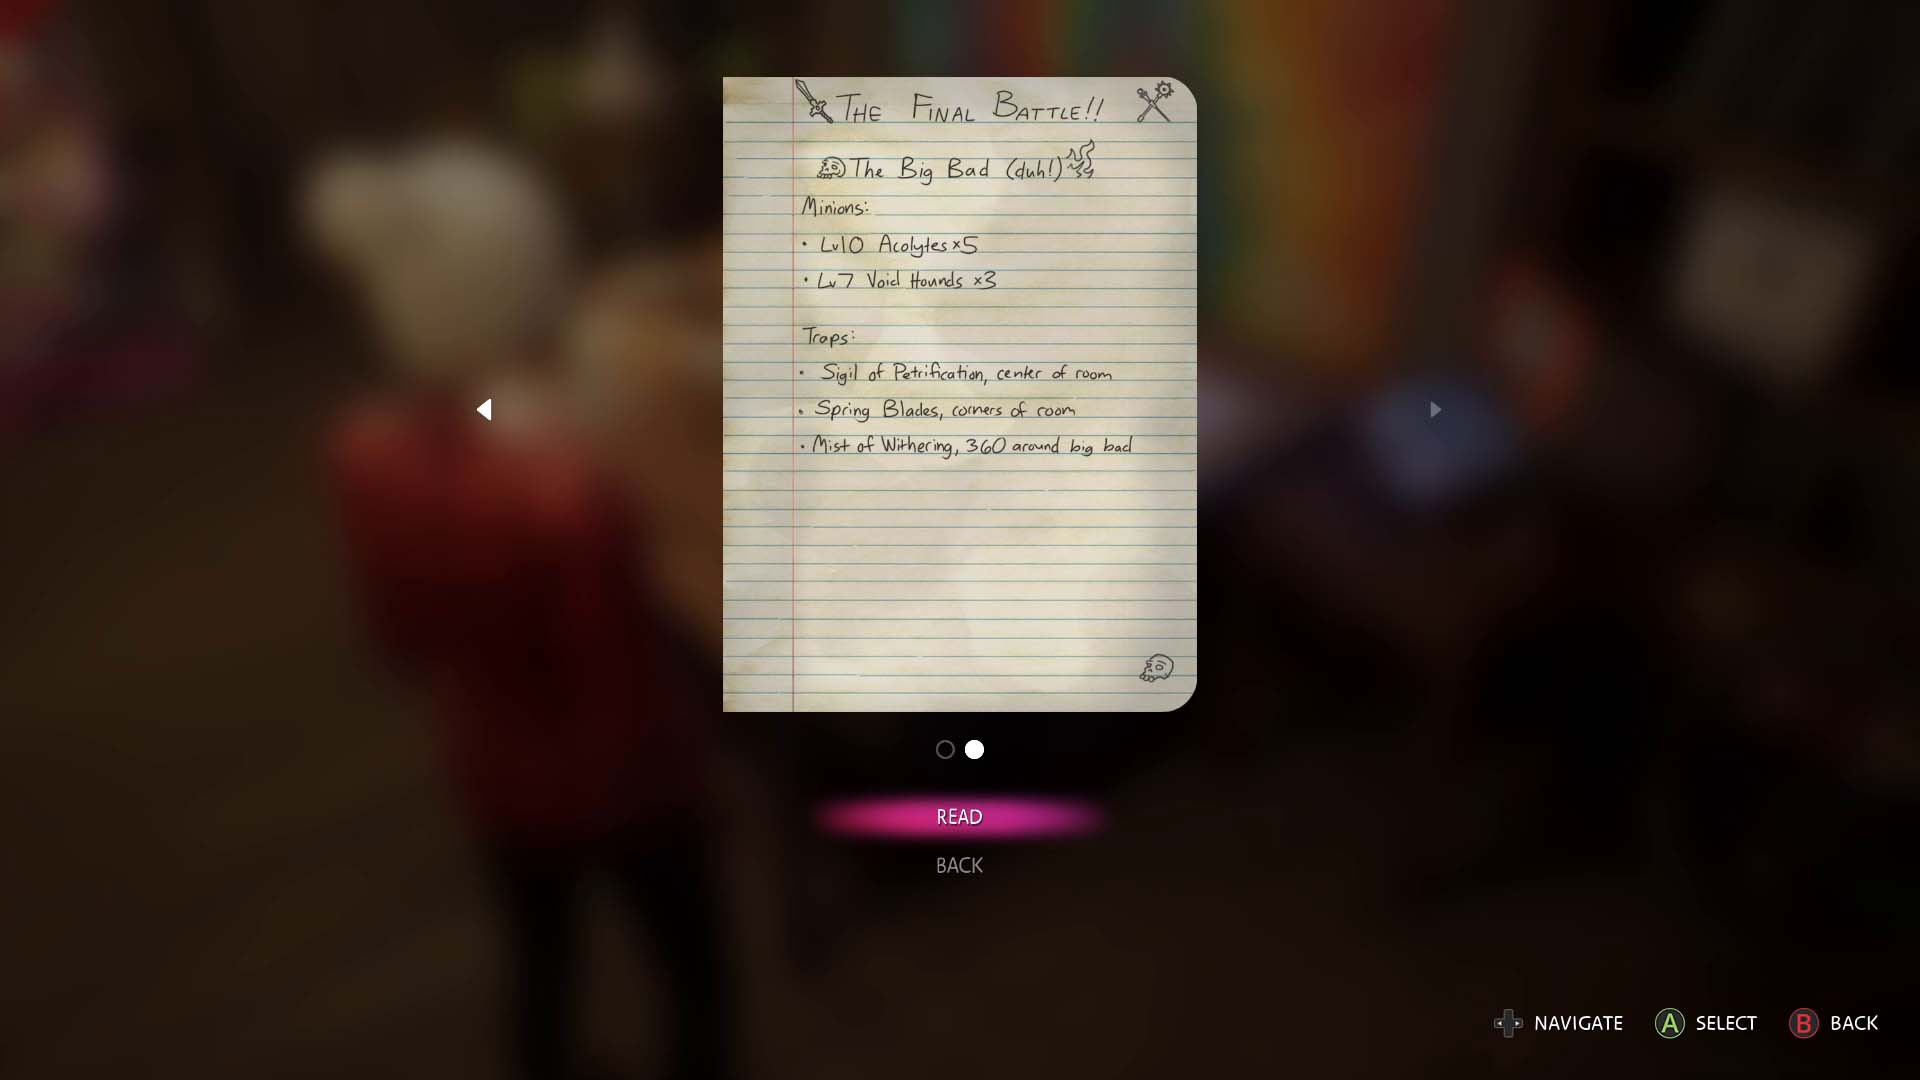 THE FINAL BATTLE!!
The Big Bad (duh!)
Minions:
• Lv10 Acolytes x5
• Lv7 Void Hounds x3
Traps:
• Sigil of Petrification, center of room
• Spring Blades, corners of room
• Mist of Withering, 360 around big bad
READ
BACK
NAVIGATE A SELECT B BACK